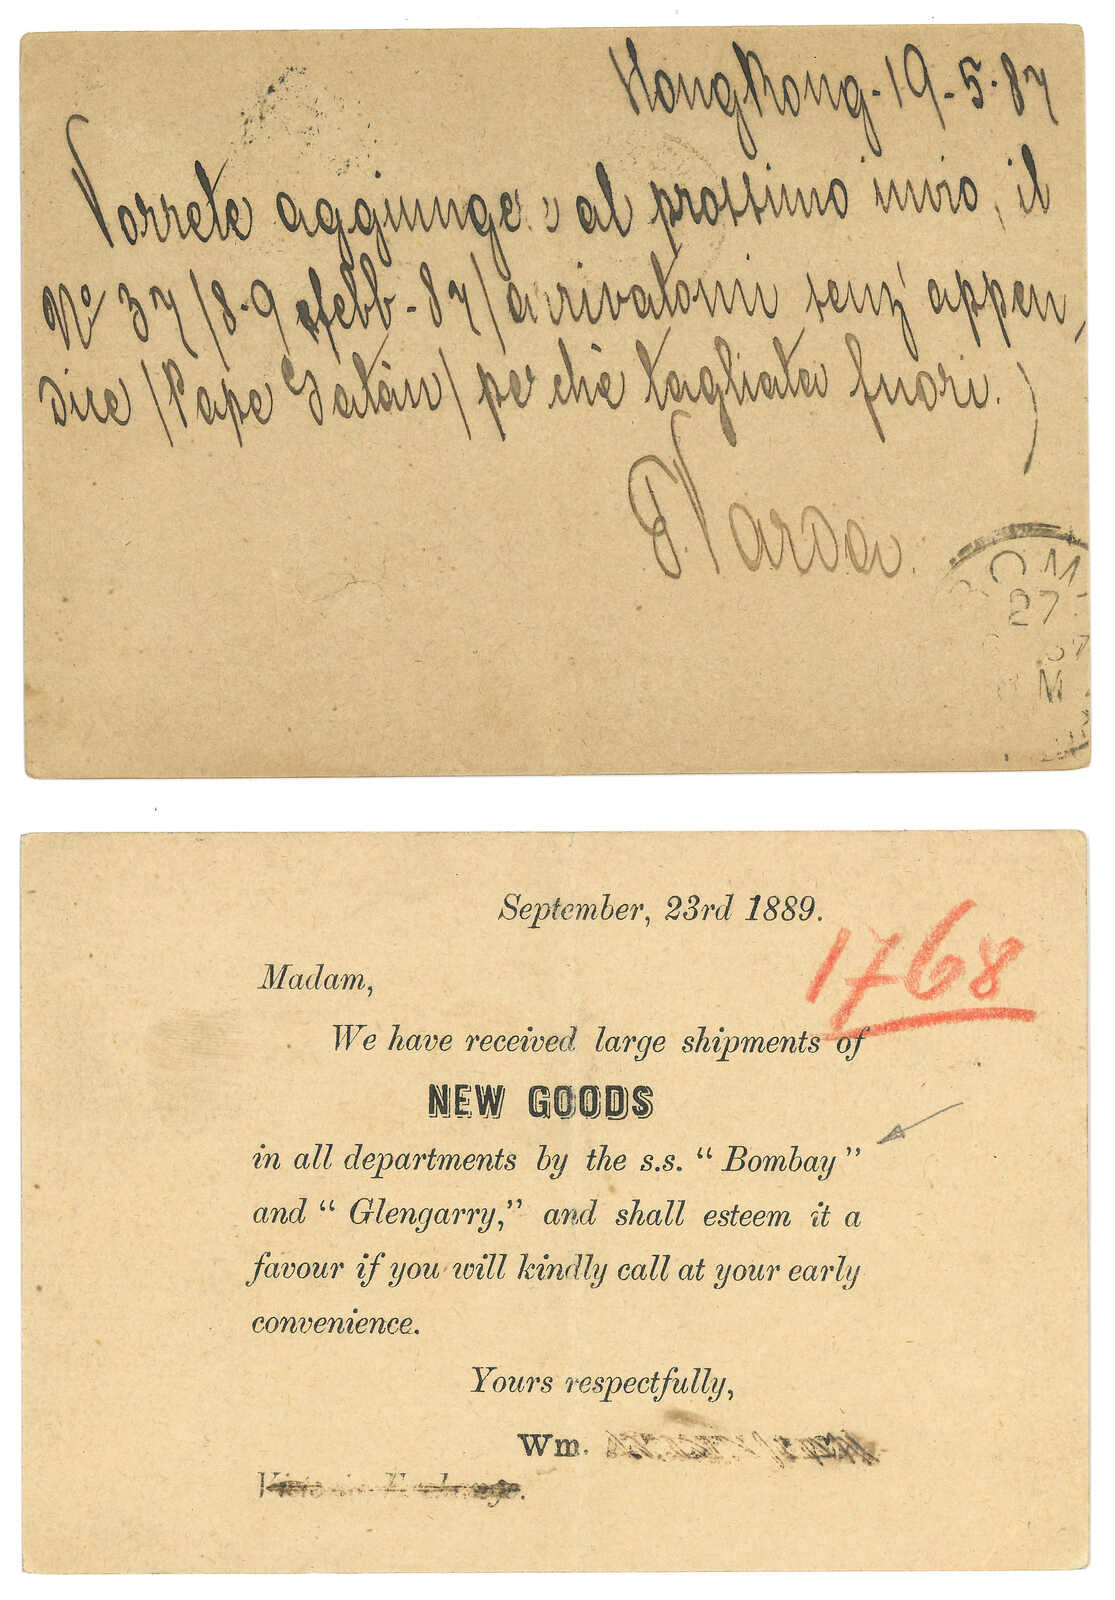 Hongkong - 19 - 5 - 87
Vorrete aggiungere al prossimo invio, il
No 37 /8-9 febb - 87/ arrivatomi senz' appen
dice /Pape Satàn/ perchè tagliata fuori.)
Varda.
27
87
M
September, 23rd 1889.
1768
Madam,
We have received large shipments of
NEW GOODS
in all departments by the s.s. “ Bombay ”
and “ Glengarry,” and shall esteem it a
favour if you will kindly call at your early
convenience.
Yours respectfully,
Wm.